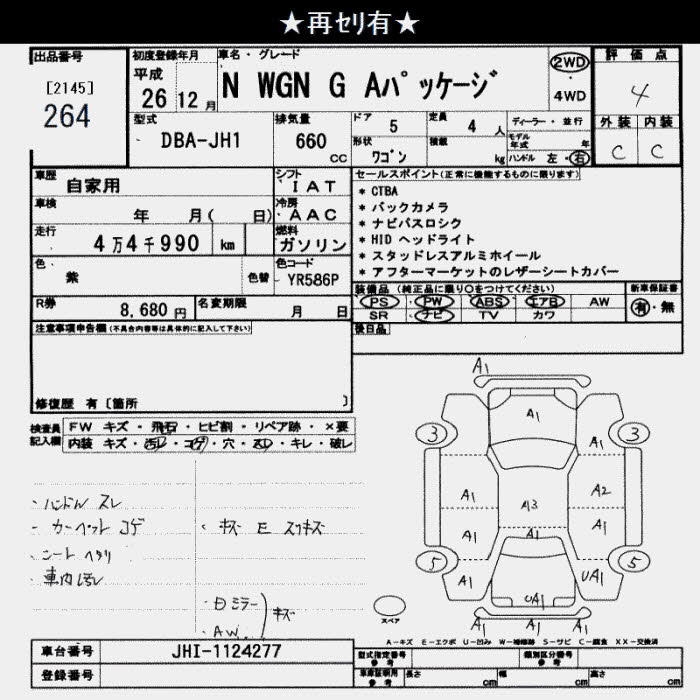 ★再セリ有★
出品番号
[2145]
264
初度登録年月
平成
26 12 月
車名・グレード
N WGN G Aパッケージ
2WD
4WD
評価点
4
外装 内装
C C
型式
DBA-JH1
排気量
660
CC
ドア
5
定員
4 人
形状
ワゴン
積載
kg
ディーラー・並行
モデル年式 年
ハンドル 左・右
車歴
自家用
シフト
IAT
車検
年 月( 日)
冷房
AAC
走行
4万4千990 km
燃料
ガソリン
色
紫
色替
色コード
YR586P
R券
8,680 円
名変期限
月 日
セールスポイント(正常に機能するものに限ります)
* CTBA
* バックカメラ
* ナビパスロシク
* HID ヘッドライト
* スタッドレスアルミホイール
* アフターマーケットのレザーシートカバー
装備品 (純正品に限り○をつけてください)
PS PW ABS エアB AW
SR ナビ TV カワ
新車保証書
有・無
後日品
注意事項申告欄(不具合内容等は具体的に記入して下さい)
修復歴 有〔箇所 〕
検査員記入欄
FW キズ・飛石・ヒビ割・リペア跡・×要
内装 キズ・汚レ・コゲ・穴・スレ・キレ・破レ
・ハンドル スレ
・カーペット コゲ
・シート ヘタリ
・車内 汚レ
・キズ E スリキズ
・ミラー
・A.W.
キズ
A1
A1
3
3
A1
A1
A2
A13
A1
A1
A1
5
5
A1
UA1
UA1
A1
A1
A1
スペア
A-キズ E-エクボ U-凹み W-補修跡 S-サビ C-腐食 XX-交換済
車台番号
JHI-1124277
登録番号
型式指定番号 参考
類別区分番号 参考
車庫証明用 参考
長さ cm
幅 cm
高さ cm